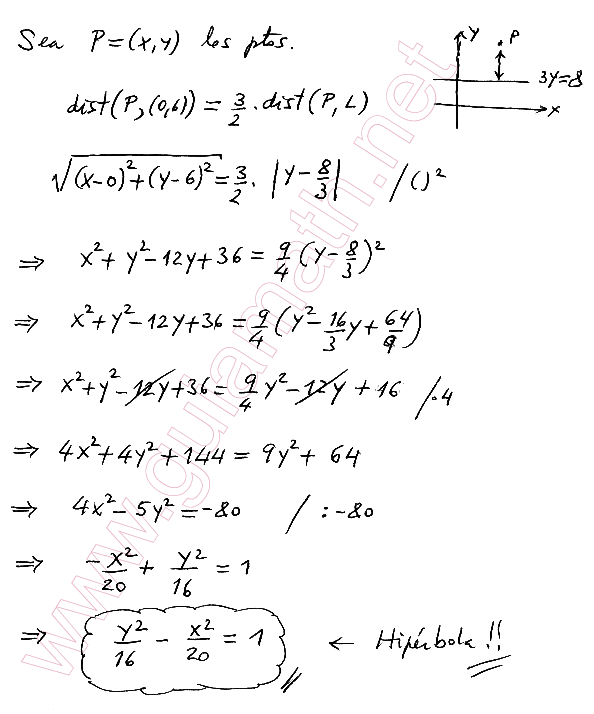 Sea P=(x,y) los ptos.
y
P
3y=8
x
dist(P,(0,6)) = 3/2 · dist(P,L)
√((x-0)²+(y-6)²) = 3/2 · |y-8/3| /()²
⇒ x²+y²-12y+36 = 9/4 (y-8/3)²
⇒ x²+y²-12y+36 = 9/4 (y²-16/3 y+64/9)
⇒ x²+y²-12y+36 = 9/4 y²-12y+16 /·4
⇒ 4x²+4y²+144 = 9y²+64
⇒ 4x²-5y² = -80 / :-80
⇒ -x²/20 + y²/16 = 1
⇒ y²/16 - x²/20 = 1 ← Hipérbola!!
www.guiamath.net